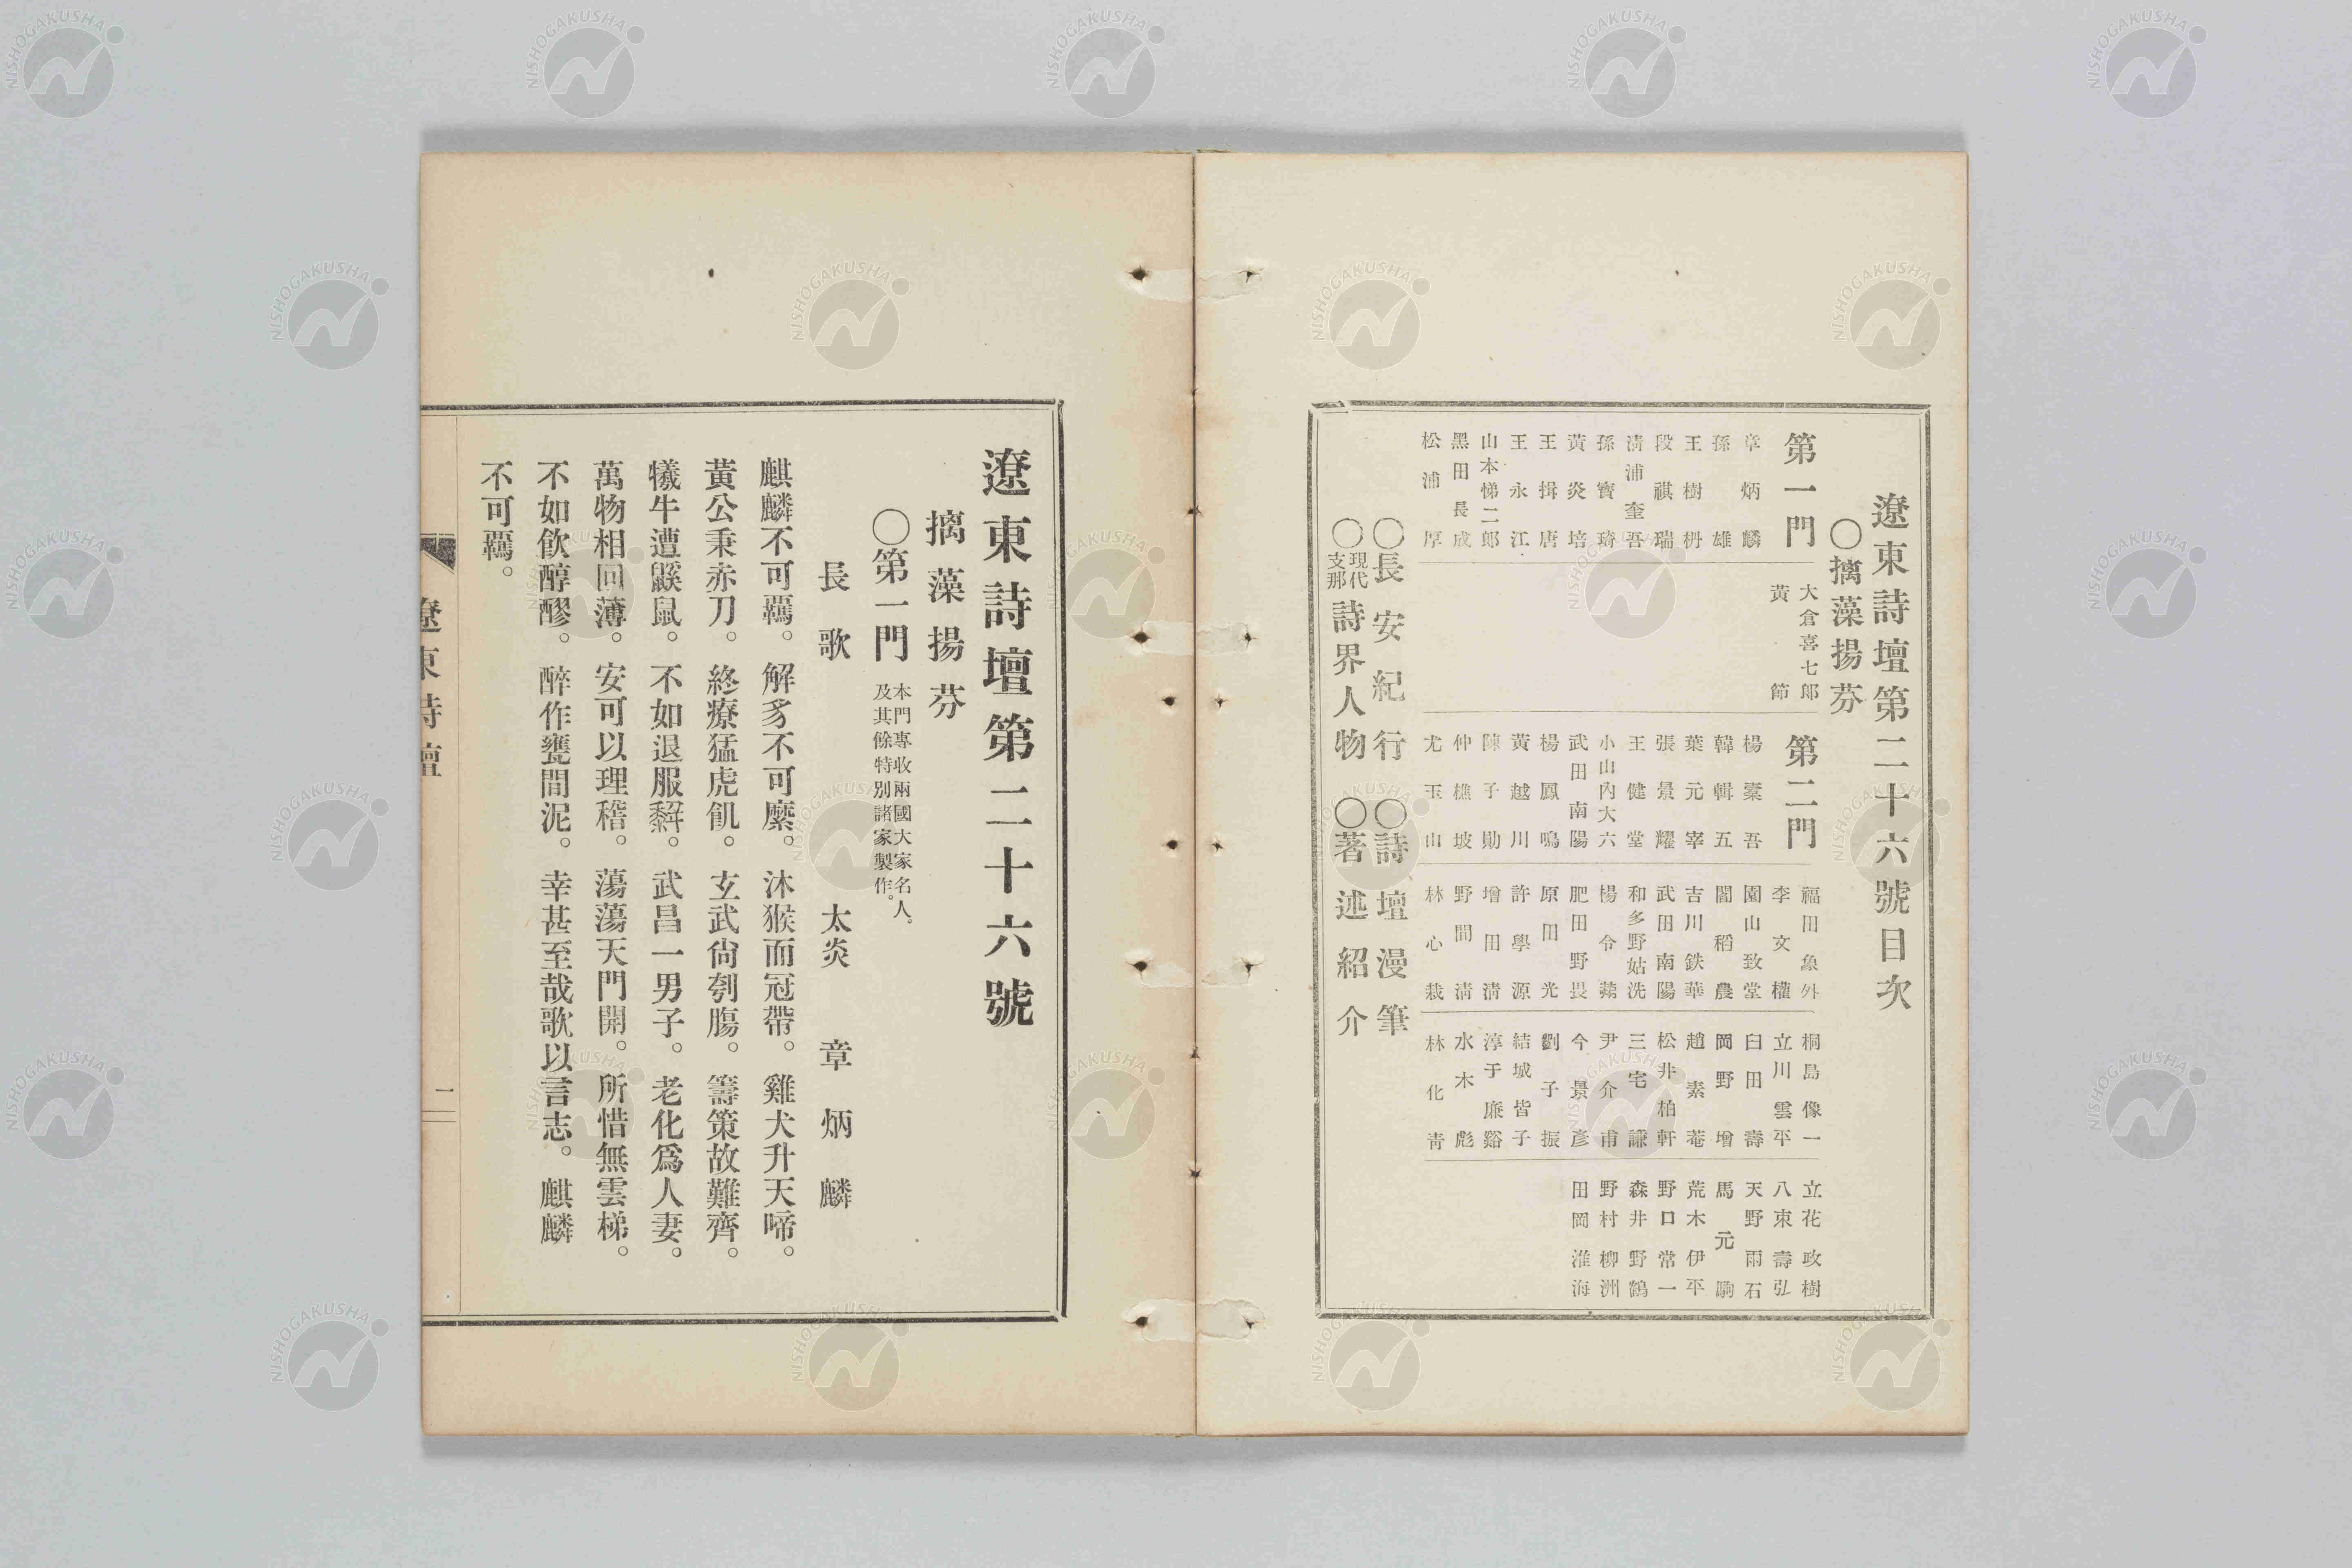 遼東詩壇第二十六號目次
〇摛藻揚芬
第一門
章炳麟
孫雄
王樹枏
段祺瑞
淸浦奎吾
孫寶琦
黃炎培
王揖唐
王永江
山本悌二郎
黑田長成
松浦厚
大倉喜七郞
黃節
第二門
楊橐吾
韓輯五
葉元宰
張景耀
王健堂
小山內大六
武田南陽
楊鳳鳴
黃越川
陳子勛
仲樵坡
尤玉山
福田象外
李文權
園山致堂
閻稻農
吉川鉄華
武田南陽
和多野姑洗
楊令茀
肥田野畏
原田光
許學源
增田淸
野間淸
林心栽
桐島像一
立川雲平
臼田壽
岡野增
趙素菴
松井柏軒
三宅謙
尹介甫
今景彥
劉子振
結城皆子
淳于廉谿
水木彪
林化靑
立花政樹
八束壽弘
天野雨石
馬元駒
荒木伊平
野口常一
森井野鶴
野村柳洲
田岡淮海
〇長安紀行 〇詩壇漫筆
〇現代支那詩界人物 〇著述紹介
遼東詩壇第二十六號
摛藻揚芬
〇第一門 本門專收兩國大家名人。及其餘特別諸家製作。
長歌 太炎 章炳麟
麒麟不可羈。解豸不可縻。沐猴而冠帶。雞犬升天啼。
黃公秉赤刀。終療猛虎飢。玄武尙刳膓。籌策故難齊。
犧牛遭鼷鼠。不如退服犂。武昌一男子。老化爲人妻。
萬物相回薄。安可以理稽。蕩蕩天門開。所惜無雲梯。
不如飮醇醪。醉作甕間泥。幸甚至哉歌以言志。麒麟
不可羈。
遼東詩壇
一
NISHOGAKUSHA